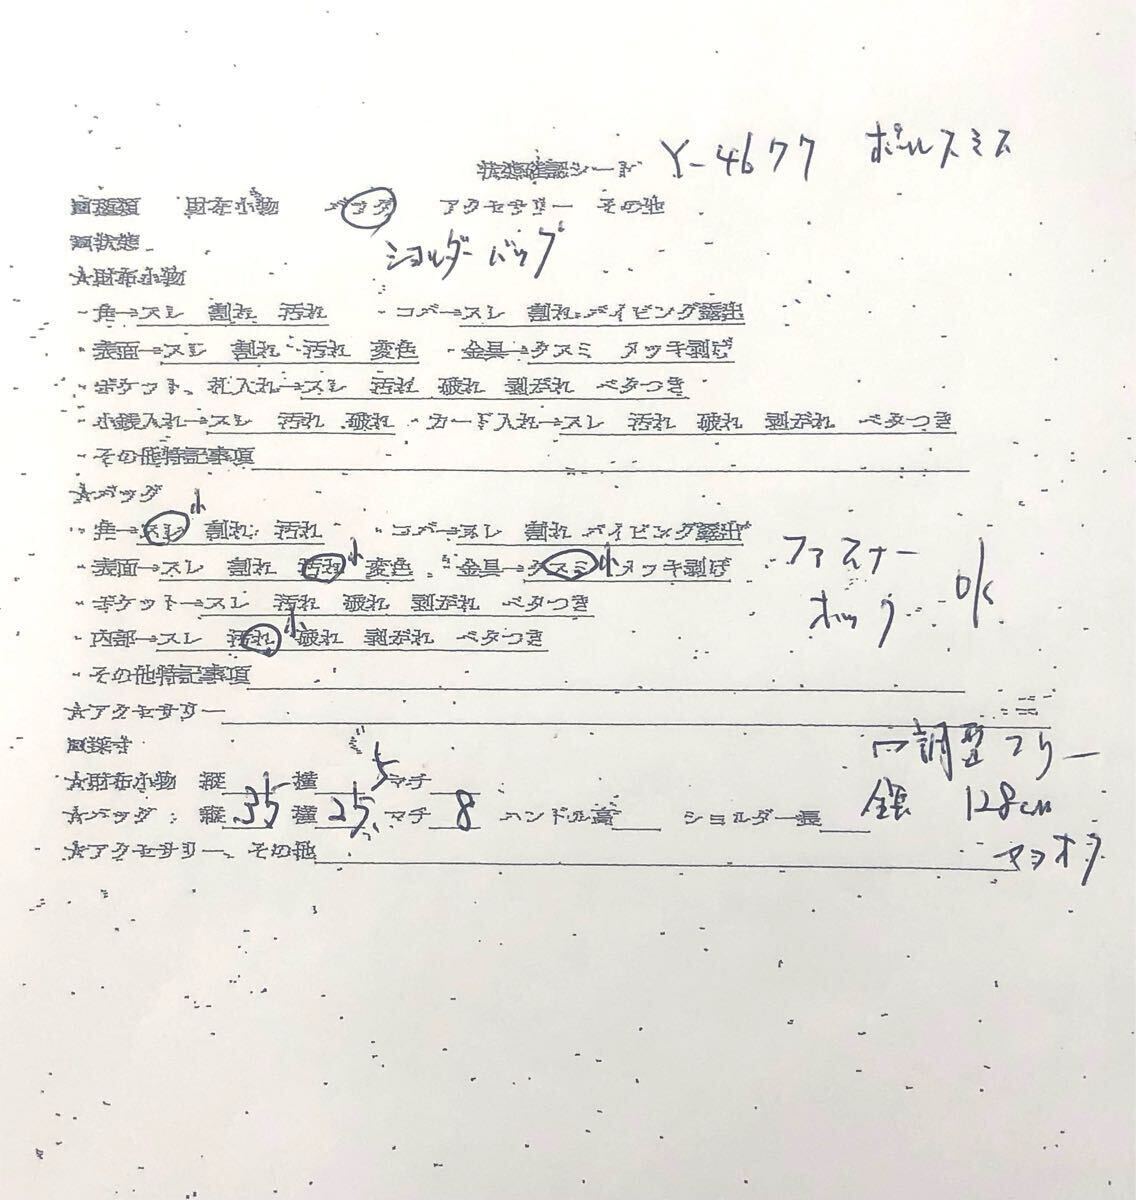 状態確認シート Y-4677 ポールスミス
■種類 財布小物 バッグ アクセサリー その他
■状態
ショルダーバッグ
★財布小物
・角→スレ 割れ 汚れ ・コバ→スレ 割れ パイピング露出
・表面→スレ 割れ 汚れ 変色 ・金具→クスミ メッキ剥げ
・ポケット、札入れ→スレ 汚れ 破れ 剥がれ ベタつき
・小銭入れ→スレ 汚れ 破れ ・カード入れ→スレ 汚れ 破れ 剥がれ ベタつき
・その他特記事項
★バッグ
小
・角→スレ 割れ 汚れ ・コバ→スレ 割れ パイピング露出
・表面→スレ 割れ 汚れ 小 変色 ・金具→クスミ 小 メッキ剥げ
ファスナー
ホック OK
・ポケット→スレ 汚れ 破れ 剥がれ ベタつき
・内部→スレ 汚れ 小 破れ 剥がれ ベタつき
・その他特記事項
★アクセサリー
■採寸
★財布小物 縦 横 マチ
★バッグ: 縦 35 横 25 マチ 8 ハンドル高 ショルダー長
調整フリー
全長 128cm
★アクセサリー、その他